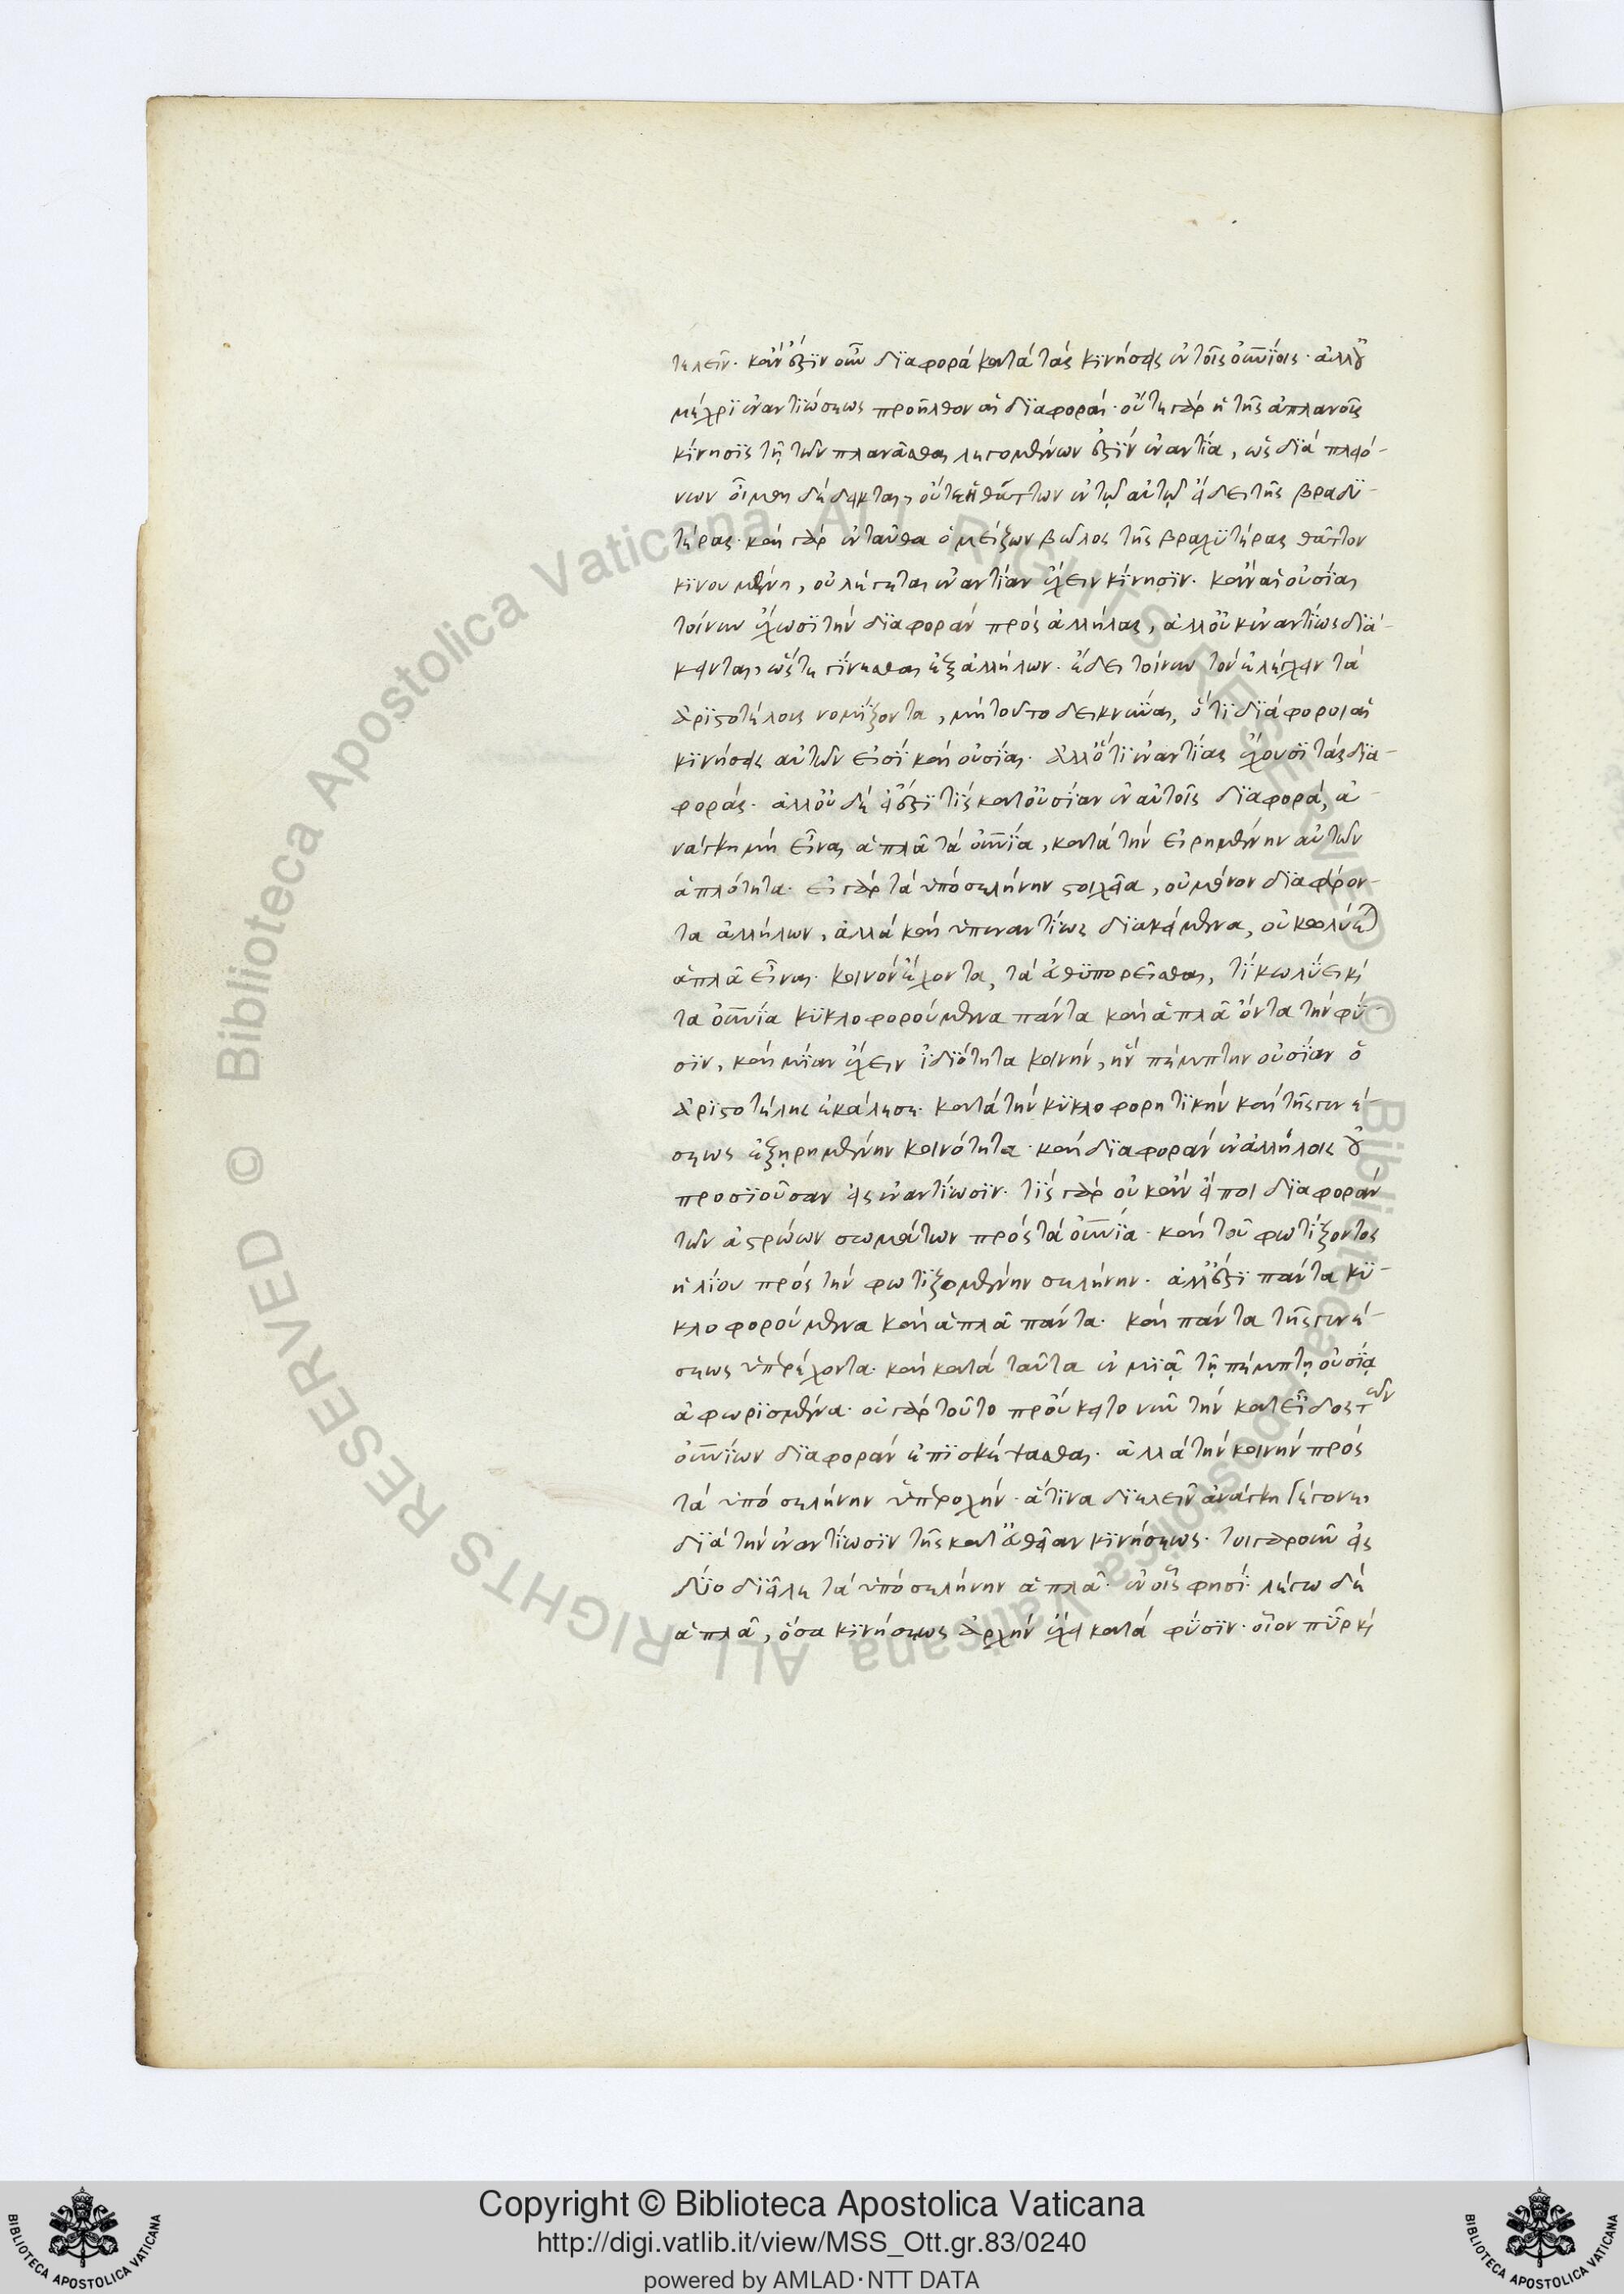 τελεῖν. κἂν ἔστιν οὖν διαφορὰ κατὰ τὰς κινήσεις ἐν τοῖς οὐνίοις. ἀλλ' οὐ
μέχρι ἐναντιώσεως προῆλθον αἱ διαφοραί. οὔτε γὰρ ἡ τῆς ἀπλανοῦς
κίνησις τῇ τῶν πλανᾶσθαι λεγομένων ἐστὶν ἐναντία, ὡς διὰ πλειό-
νων οἶμαι δέδεικται, οὔτε ἡ θάττων ἐν τῷ αὐτῷ εἴδει τῆς βραδυ-
τέρας. καὶ γὰρ ἐνταῦθα ὁ μείζων βῶλος τῆς βραχυτέρας θᾶττον
κινουμένη, οὐ λέγεται ἐναντίαν ἔχειν κίνησιν. κἂν αἱ οὐσίαι
τοίνυν ἔχωσι τὴν διαφορὰν πρὸς ἀλλήλας, ἀλλ' οὐκ ἐναντίως διά-
κεινται, ὥστε γίνεσθαι ἐξ ἀλλήλων. ἔδει τοίνυν τὸν ἐλέγχειν τὰ
ἀριστοτέλους νομίζοντα, μὴ τοῦτο δεικνύναι, ὅτι διάφοροι αἱ
κινήσεις αὐτῶν εἰσὶ καὶ οὐσίαι. ἀλλ' ὅτι ἐναντίας ἔχουσι τὰς δια-
φοράς. ἀλλ' οὐδὲ εἰ ἔστι τίς κατ' οὐσίαν ἐν αὐτοῖς διαφορά, ἀ-
νάγκη μὴ εἶναι ἁπλᾶ τὰ οὐνία, κατὰ τὴν εἰρημένην αὐτῶν
ἁπλότητα. εἰ γὰρ τὰ ὑπὸ σελήνην στοιχεῖα, οὐ μόνον διαφέρον-
τα ἀλλήλων, ἀλλὰ καὶ ὑπεναντίως διακείμενα, οὐ κωλύεται
ἁπλᾶ εἶναι. κοινὸν ἔχοντα, τὰ εὐθυπορεῖσθαι, τί κωλύει καὶ
τὰ οὐνία κυκλοφορούμενα πάντα καὶ ἁπλᾶ ὄντα τὴν φύ-
σιν, καὶ μίαν ἔχειν ἰδιότητα κοινήν, ἣν πέμπτην οὐσίαν ὁ
ἀριστοτέλης ἐκάλεσε. κατὰ τὴν κυκλοφορητικὴν καὶ τῆς γενέ-
σεως ἐξῃρημένην κοινότητα. καὶ διαφορὰν ἐν ἀλλήλοις οὐ
προσιοῦσαν εἰς ἐναντίωσιν. τίς γὰρ οὐκ ἂν εἴποι διαφορὰν
τῶν ἀστρώων σωμάτων πρὸς τὰ οὐνία. καὶ τοῦ φωτίζοντος
ἡλίου πρὸς τὴν φωτιζομένην σελήνην. ἀλλ' ἔστι πάντα κυ-
κλοφορούμενα καὶ ἁπλᾶ πάντα. καὶ πάντα τῆς γενέ-
σεως ὑπερέχοντα. καὶ κατὰ ταῦτα ἐν μιᾷ τῇ πέμπτῃ οὐσίᾳ
ἀφωρισμένα. οὐ γὰρ τοῦτο προὔκειτο νῦν τὴν κατ' εἶδος τῶν
οὐνίων διαφορὰν ἐπισκέψασθαι. ἀλλὰ τὴν κοινὴν πρὸς
τὰ ὑπὸ σελήνην ὑπεροχήν. ἅτινα διελεῖν ἀνάγκη γέγονε,
διὰ τὴν ἐναντίωσιν τῆς κατ' εὐθεῖαν κινήσεως. τοιγαροῦν εἰς
δύο διεῖλε τὰ ὑπὸ σελήνην ἁπλᾶ. ἐν οἷς φησί. λέγω δὲ
ἁπλᾶ, ὅσα κινήσεως ἀρχὴν ἔχει κατὰ φύσιν. οἷον πῦρ καὶ
Copyright © Biblioteca Apostolica Vaticana
http://digi.vatlib.it/view/MSS_Ott.gr.83/0240
powered by AMLAD·NTT DATA